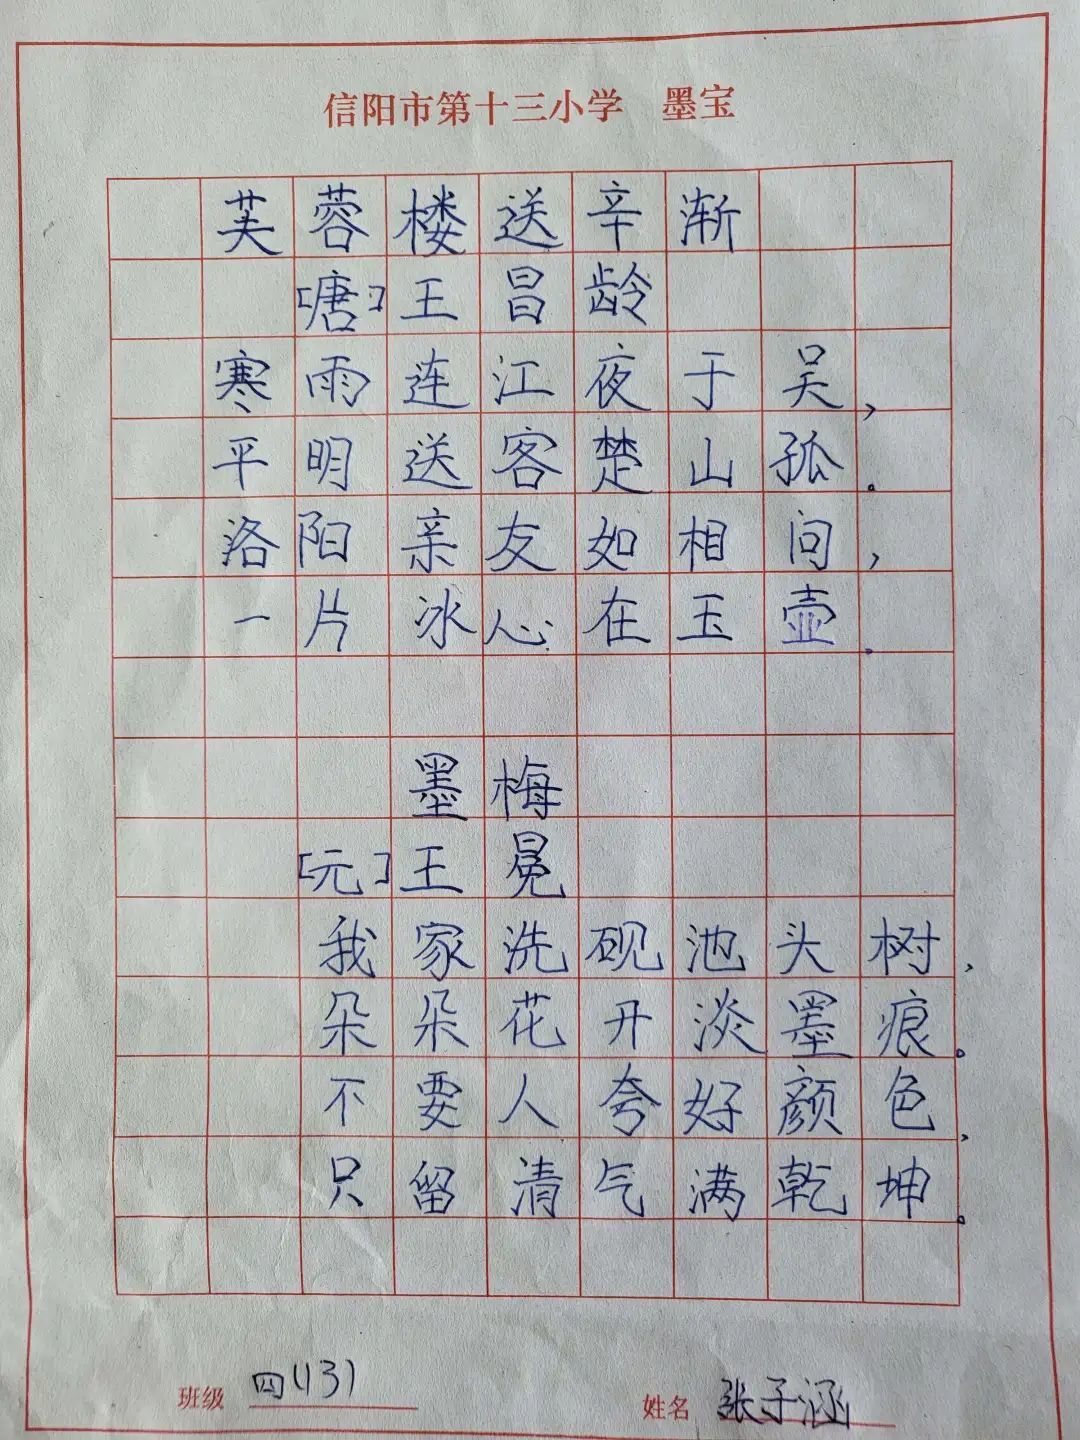 信阳市第十三小学 墨宝
芙蓉楼送辛渐
[唐]王昌龄
寒雨连江夜于吴,
平明送客楚山孤。
洛阳亲友如相问,
一片冰心在玉壶.
墨梅
[元]王冕
我家洗砚池头树,
朵朵花开淡墨痕。
不要人夸好颜色,
只留清气满乾坤。
班级 四(13) 姓名 张子涵